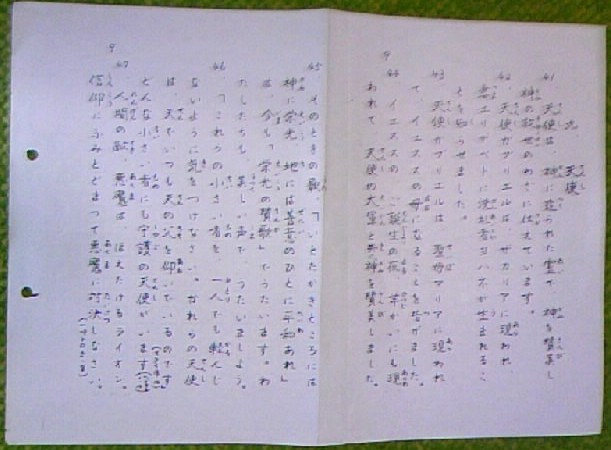 九 天使
41 天使は 神に造られた霊で 神を賛美し
神の救世のわざに仕えています。
42 天使ガブリエルは、ザカリアに現われ
妻エリザベトに洗礼者ヨハネが生まれるこ
とを知らせました。
43 天使ガブリエルは 聖母マリアに現われ
て、イエススの母になることを告げました。
44 イエススの ご誕生の夜 羊かいにも現
われて 天使の大軍と共に神を賛美しました。
9
45 そのときの歌、「いとたかきところには
神に栄光 地には善意のひとに平和あれ」
は、今も「栄光の賛歌」でうたいます。わ
たしたちも 美しい声で うたいましょう。
46 「これらの小さい者を 一人でも軽んじ
ないように気をつけなさい。かれらの天使
は、天でいつも天の父を仰いでいるのです
どんな小さい者にも守護の天使がいます
47 人間の敵 悪魔は ほえたけるライオン。
信仰にふみとどまって悪魔に対決しなさい。
9